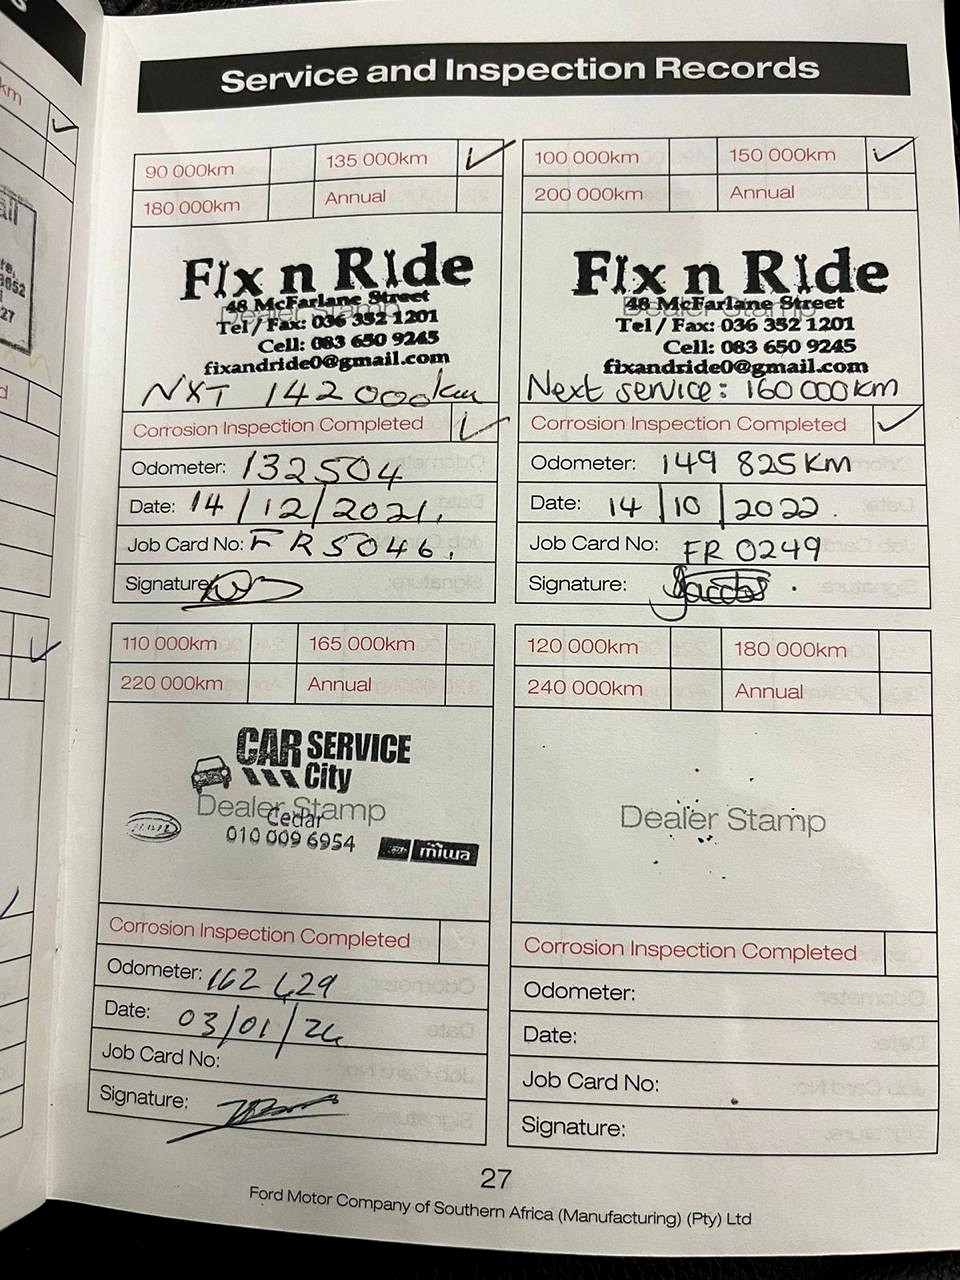 Service and Inspection Records
90 000km 135 000km ✓
180 000km Annual
Fix n Ride
Dealer Stamp
48 McFarlane Street
Tel / Fax: 036 352 1201
Cell: 083 650 9245
fixandride0@gmail.com
NXT 142 000km
Corrosion Inspection Completed ✓
Odometer: 132504
Date: 14/12/2021.
Job Card No: FR5046.
Signature:
100 000km 150 000km ✓
200 000km Annual
Fix n Ride
Dealer Stamp
48 McFarlane Street
Tel / Fax: 036 352 1201
Cell: 083 650 9245
fixandride0@gmail.com
Next service: 160 000km
Corrosion Inspection Completed ✓
Odometer: 149 825 KM
Date: 14/10/2022.
Job Card No: FR 0249
Signature: Jacobs.
110 000km 165 000km
220 000km Annual
CAR SERVICE
City
Dealer Stamp
Cedar
010 009 6954
miwa
Corrosion Inspection Completed
Odometer: 162
Date: 03/01/
Job Card No:
Signature:
120 000km 180 000km
240 000km Annual
Dealer Stamp
Corrosion Inspection Completed
Odometer:
Date:
Job Card No:
Signature:
27
Ford Motor Company of Southern Africa (Manufacturing) (Pty) Ltd
km ✓
27